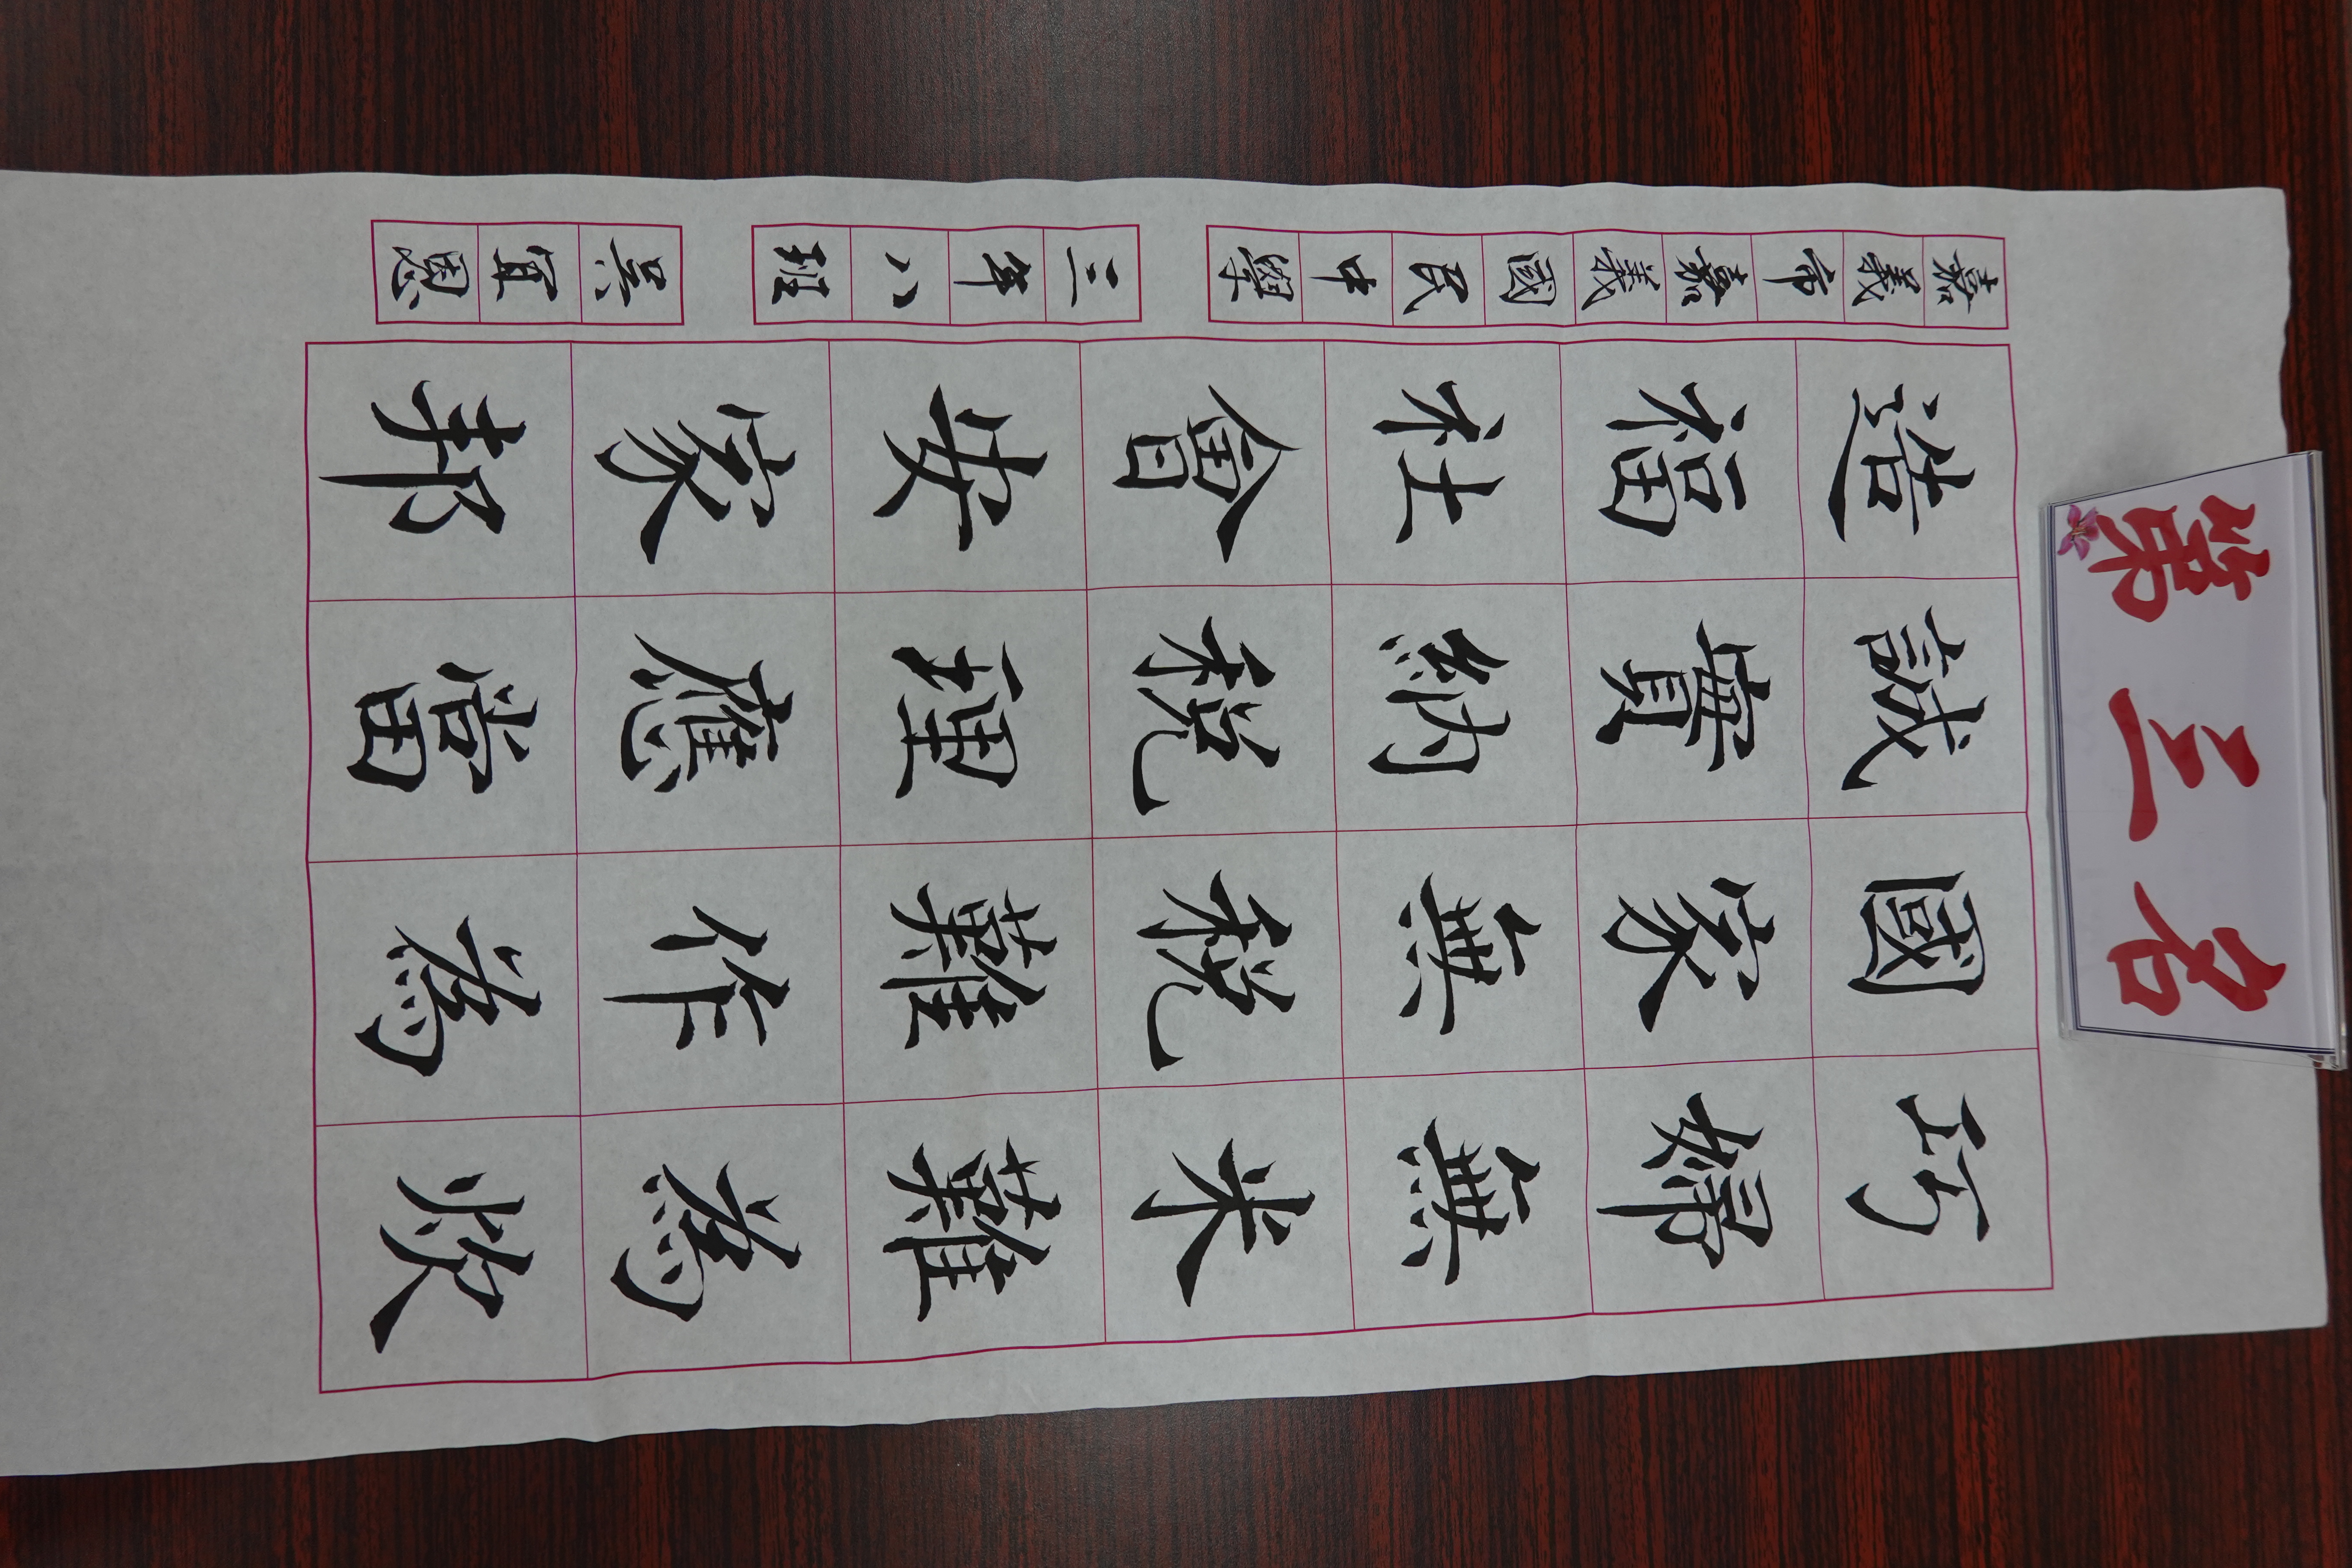 第三名
巧婦無米難為炊
國家無稅難作為
誠實納稅理應當
造福社會安家邦
嘉義市嘉義國民中學
三年八班
吳宜恩